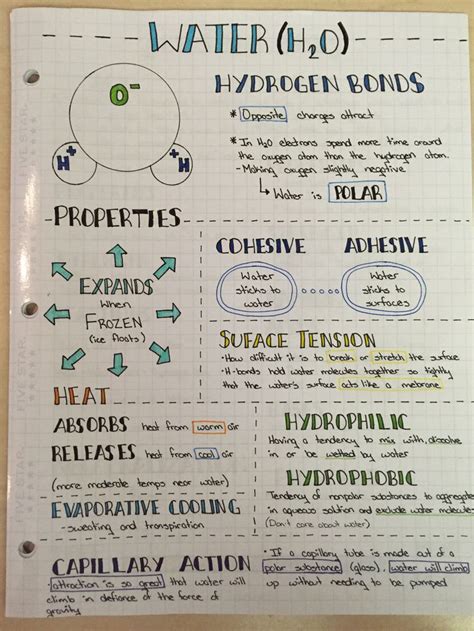 WATER (H₂O)
O⁻
H⁺
H⁺
HYDROGEN BONDS
* Opposite charges attract
* In H₂O electrons spend more time around
the oxygen atom than the hydrogen atom.
- Making oxygen slightly negative
↳ Water is POLAR
PROPERTIES
EXPANDS
When
FROZEN
(ice floats)
COHESIVE
Water
sticks to
water
ADHESIVE
Water
sticks to
surfaces
SUFACE TENSION
• How difficult it is to break or stretch the surface
• H-bonds hold water molecules together so tightly
that the water's surface acts like a mebrane
HEAT
ABSORBS heat from warm air
RELEASES heat from cool air
(more moderate temps near water)
EVAPORATIVE COOLING
- sweating and transpiration
HYDROPHILIC
Having a tendency to mix with, dissolve
in or be wetted by water
HYDROPHOBIC
Tendency of nonpolar substances to aggregate
in aqueous solution and exclude water molecules
(Don't care about water)
CAPILLARY ACTION
• attraction is so great that water will
climb in defiance of the force of
gravity
• If a capillary tube is made out of a
polar substance (glass), water will climb
up without needing to be pumped
FIVE STAR.
FIVE STAR.